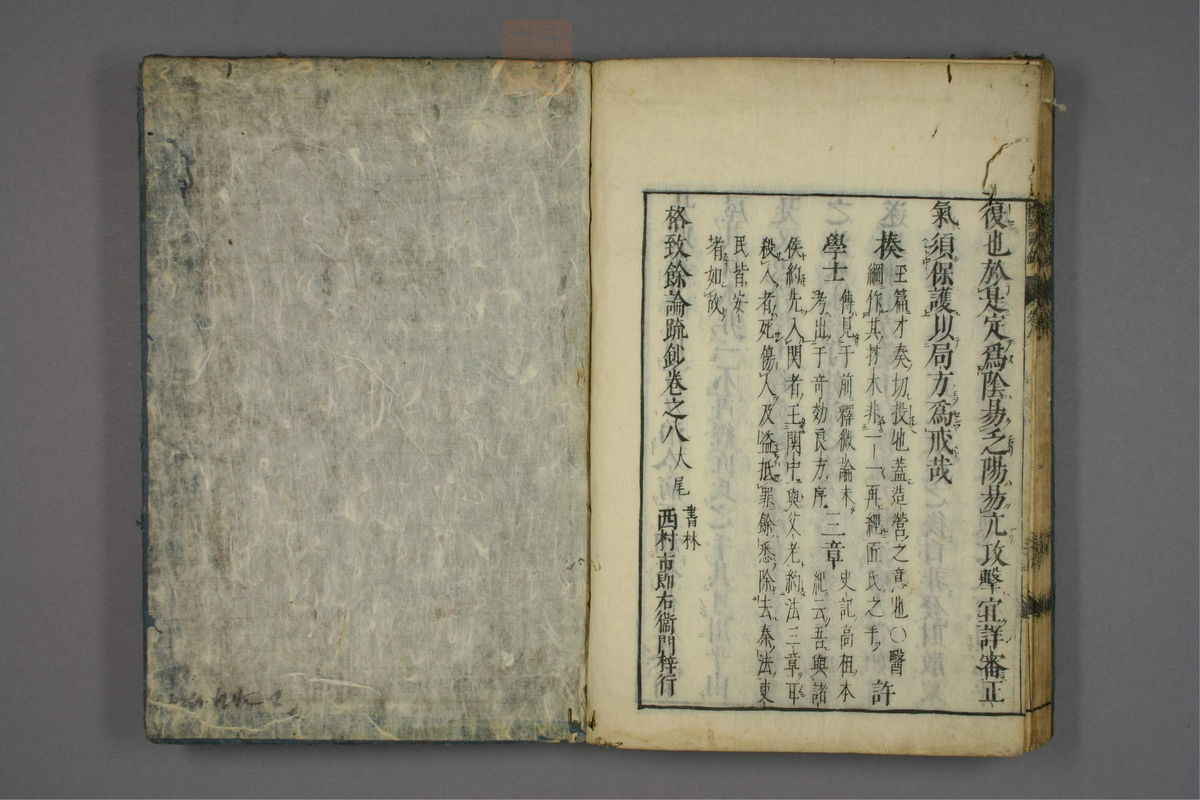 復也於是定爲陰易乏陽易亢攻擊宜詳審正
氣須保護以局方爲戒哉
揍 玉篇才奏切投也蓋造營之意也〇醫
綱作其材木非一一再經匠氏之手 許
學士 傳見于前釋微論未
考出于奇効良方序 三章 史記高祖本
紀云吾與諸
侯約先入関者王関中與父老約法三章耳
殺人者死傷人及盗抵罪餘悉除去秦法吏
民皆安
堵如故
格致餘論疏鈔卷之八大尾
書林
西村市郎右衞門梓行